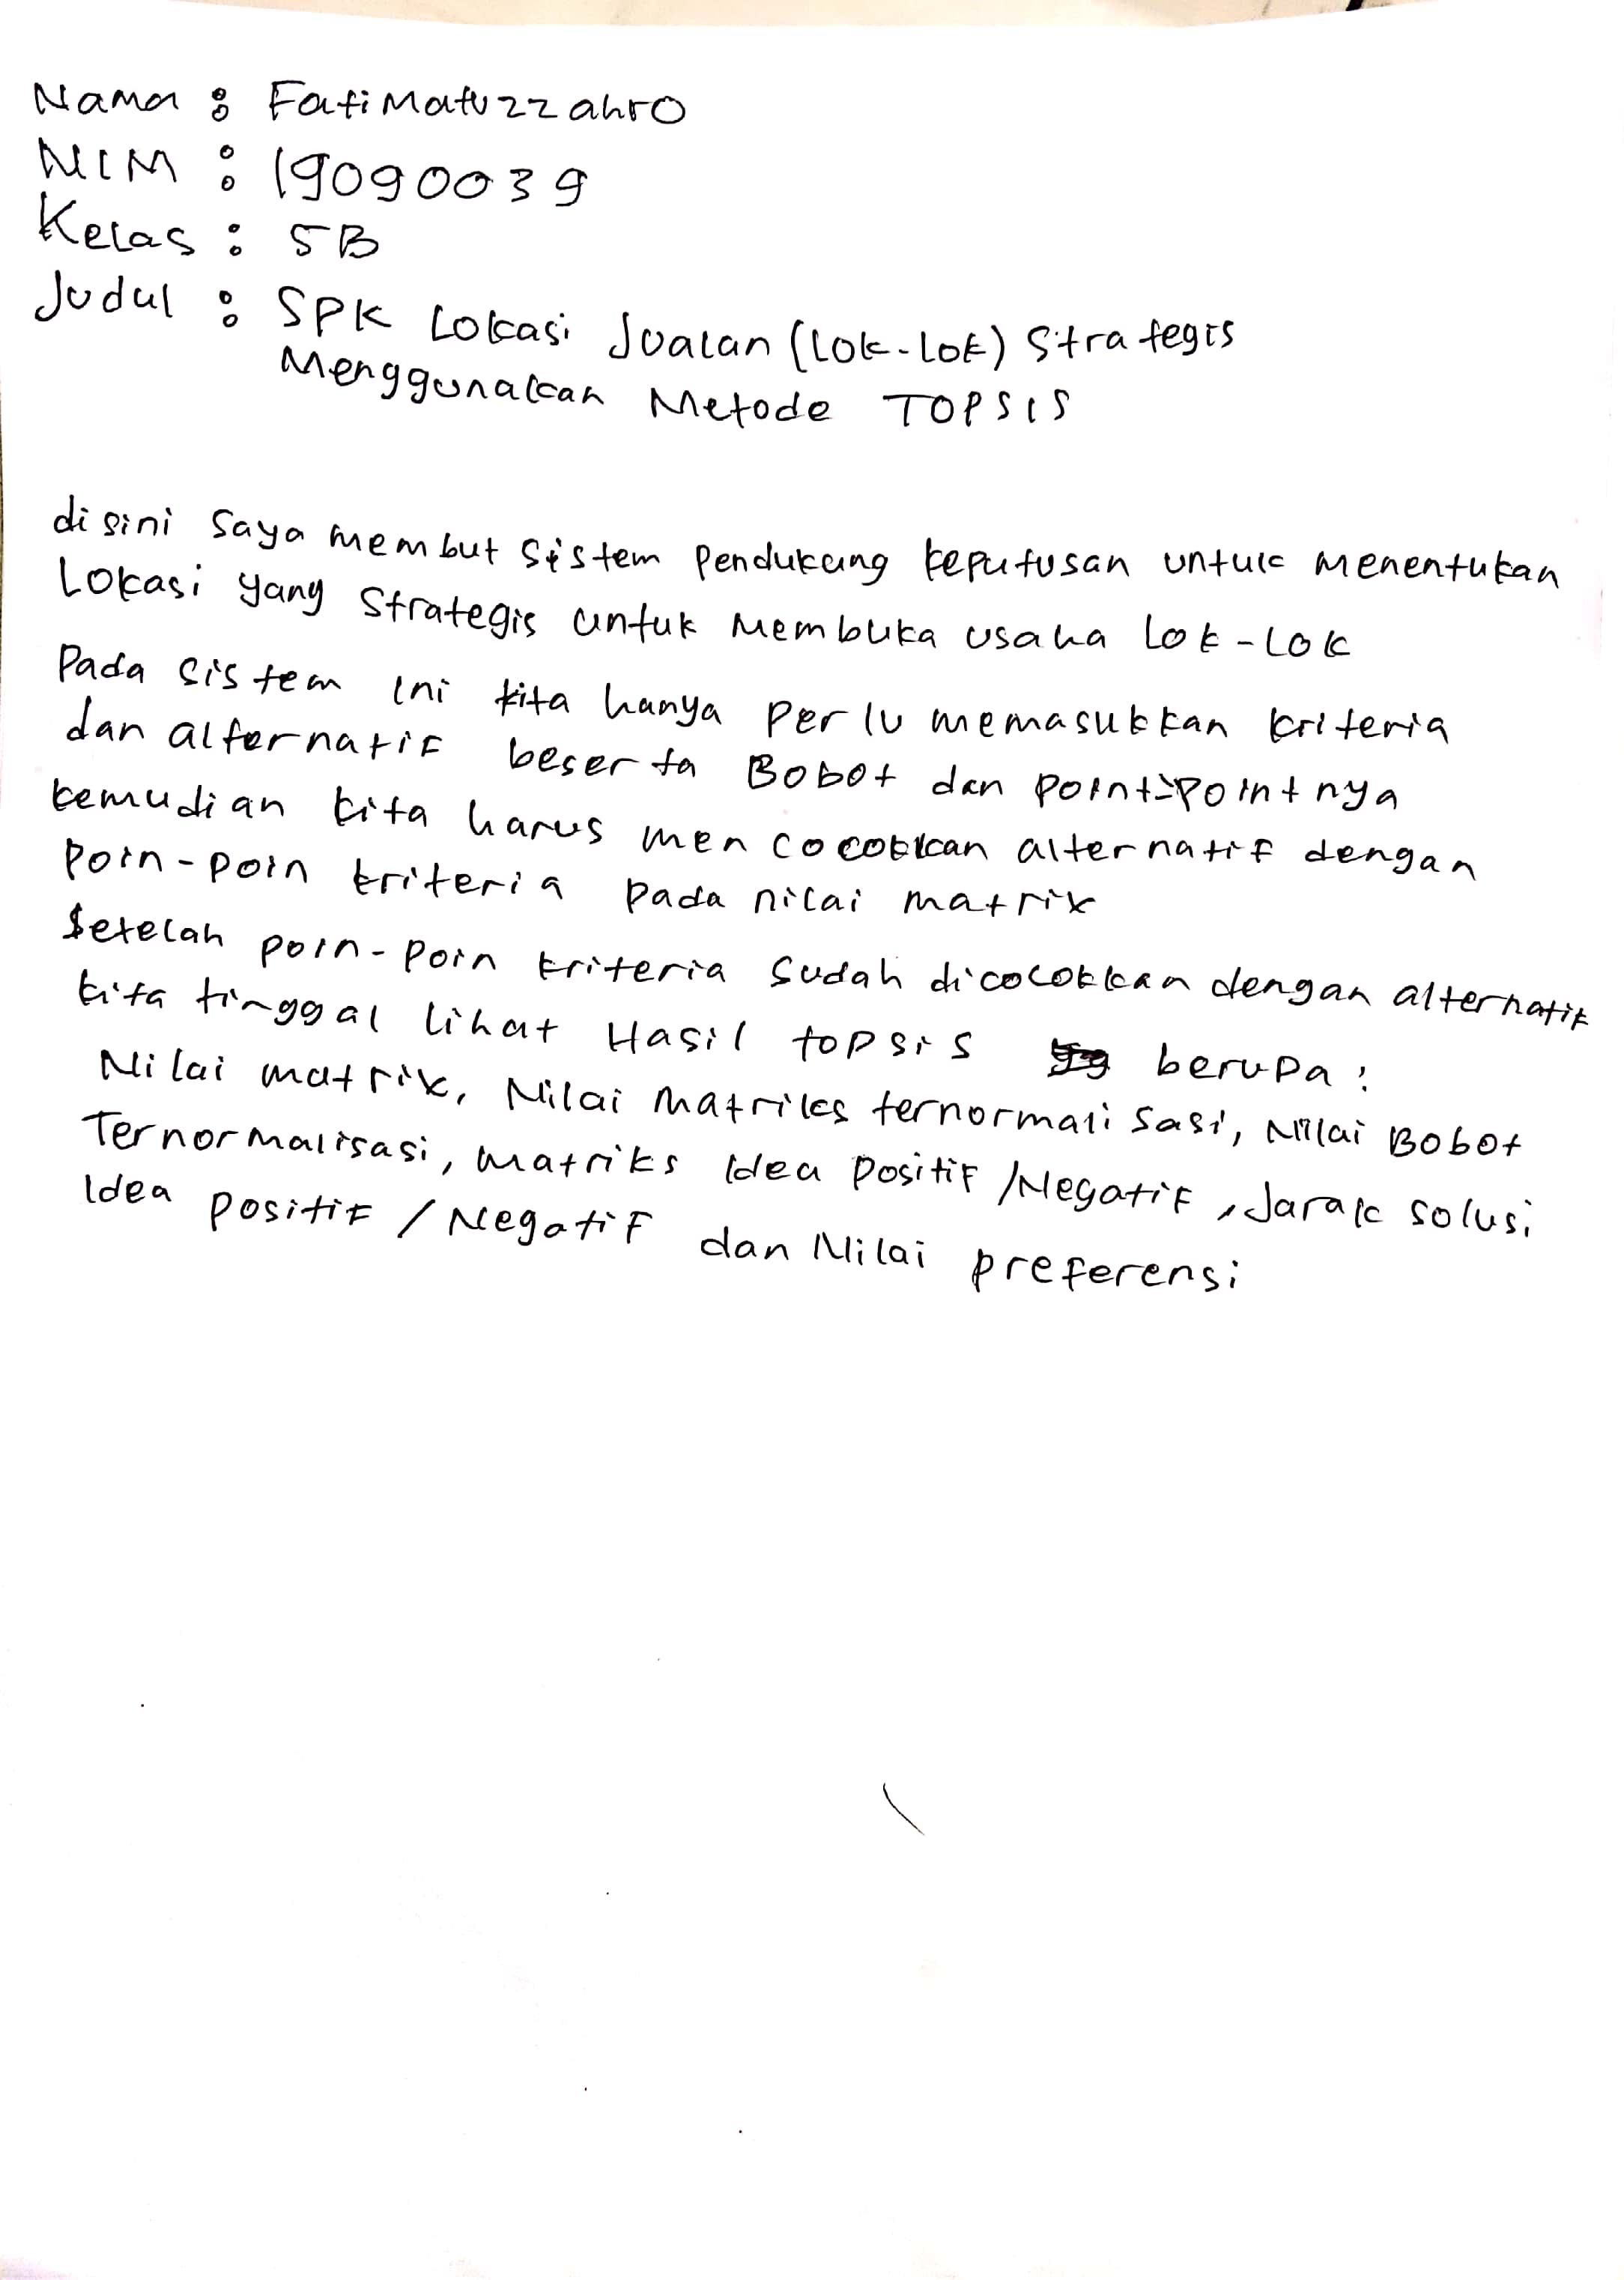 Nama : Fatimatuzzahro
NIM : 19090039
Kelas : 5B
Judul : SPK Lokasi Jualan (Lok-Lok) Strategis
Menggunakan Metode TOPSIS
disini saya membut sistem pendukung keputusan untuk menentukan
Lokasi yang Strategis untuk Membuka usaha Lok-Lok
Pada sistem ini kita hanya perlu memasukkan kriteria
dan alternatif beserta Bobot dan point-pointnya
kemudian kita harus mencocokkan alternatif dengan
poin-poin kriteria pada nilai matrix
Setelah poin-poin kriteria sudah dicocokkan dengan alternatif
kita tinggal lihat Hasil topsis berupa :
Nilai matrix, Nilai Matriks ternormalisasi, Nilai Bobot
Ternormalisasi, Matriks Idea Positif /Negatif, Jarak solusi
Idea positif / Negatif dan Nilai preferensi